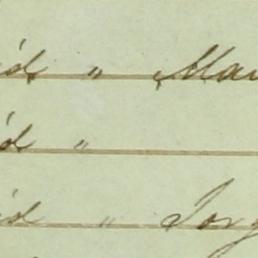 id " Mar
id "
id " Jorg